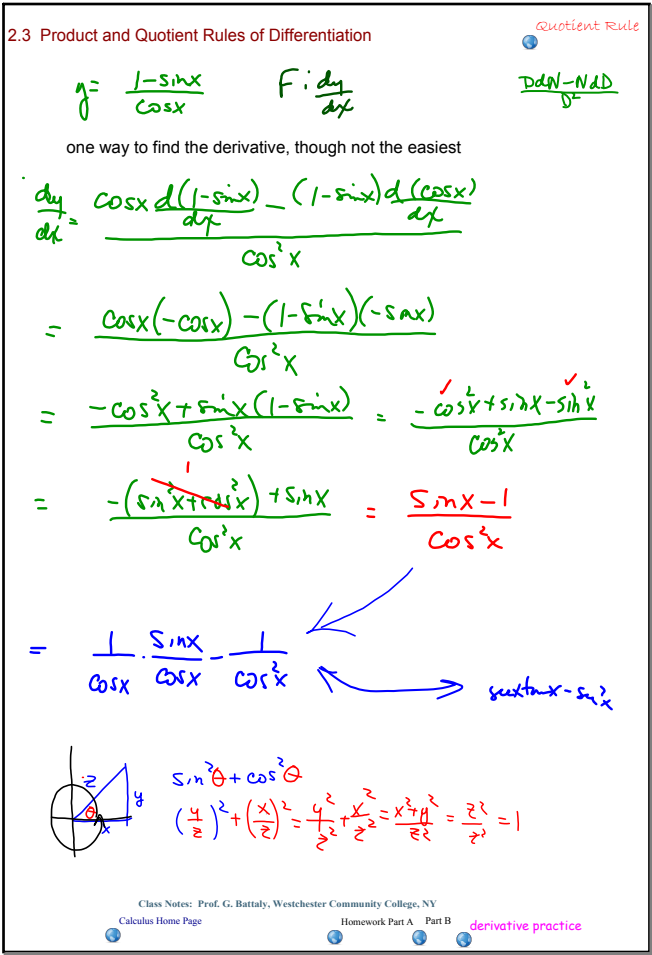 Quotient Rule
2.3 Product and Quotient Rules of Differentiation
y = (1-sinx)/(cosx)   F: dy/dx   (DdN-NdD)/D²
one way to find the derivative, though not the easiest
dy/dx = (cosx d(1-sinx)/dx - (1-sinx) d(cosx)/dx)/(cos²x)
= (cosx(-cosx) - (1-sinx)(-sinx))/(cos²x)
= (-cos²x + sinx(1-sinx))/(cos²x) = (-cos²x + sinx - sin²x)/(cos²x)
1
= (-(sin²x+cos²x) + sinx)/(cos²x) = (sinx-1)/(cos²x)
= 1/cosx · sinx/cosx - 1/cos²x   secxtanx - sec²x
z y θ x
sin²θ + cos²θ
(y/z)² + (x/z)² = y²/z² + x²/z² = (x²+y²)/z² = z²/z² = 1
Class Notes: Prof. G. Battaly, Westchester Community College, NY
Calculus Home Page   Homework Part A   Part B   derivative practice